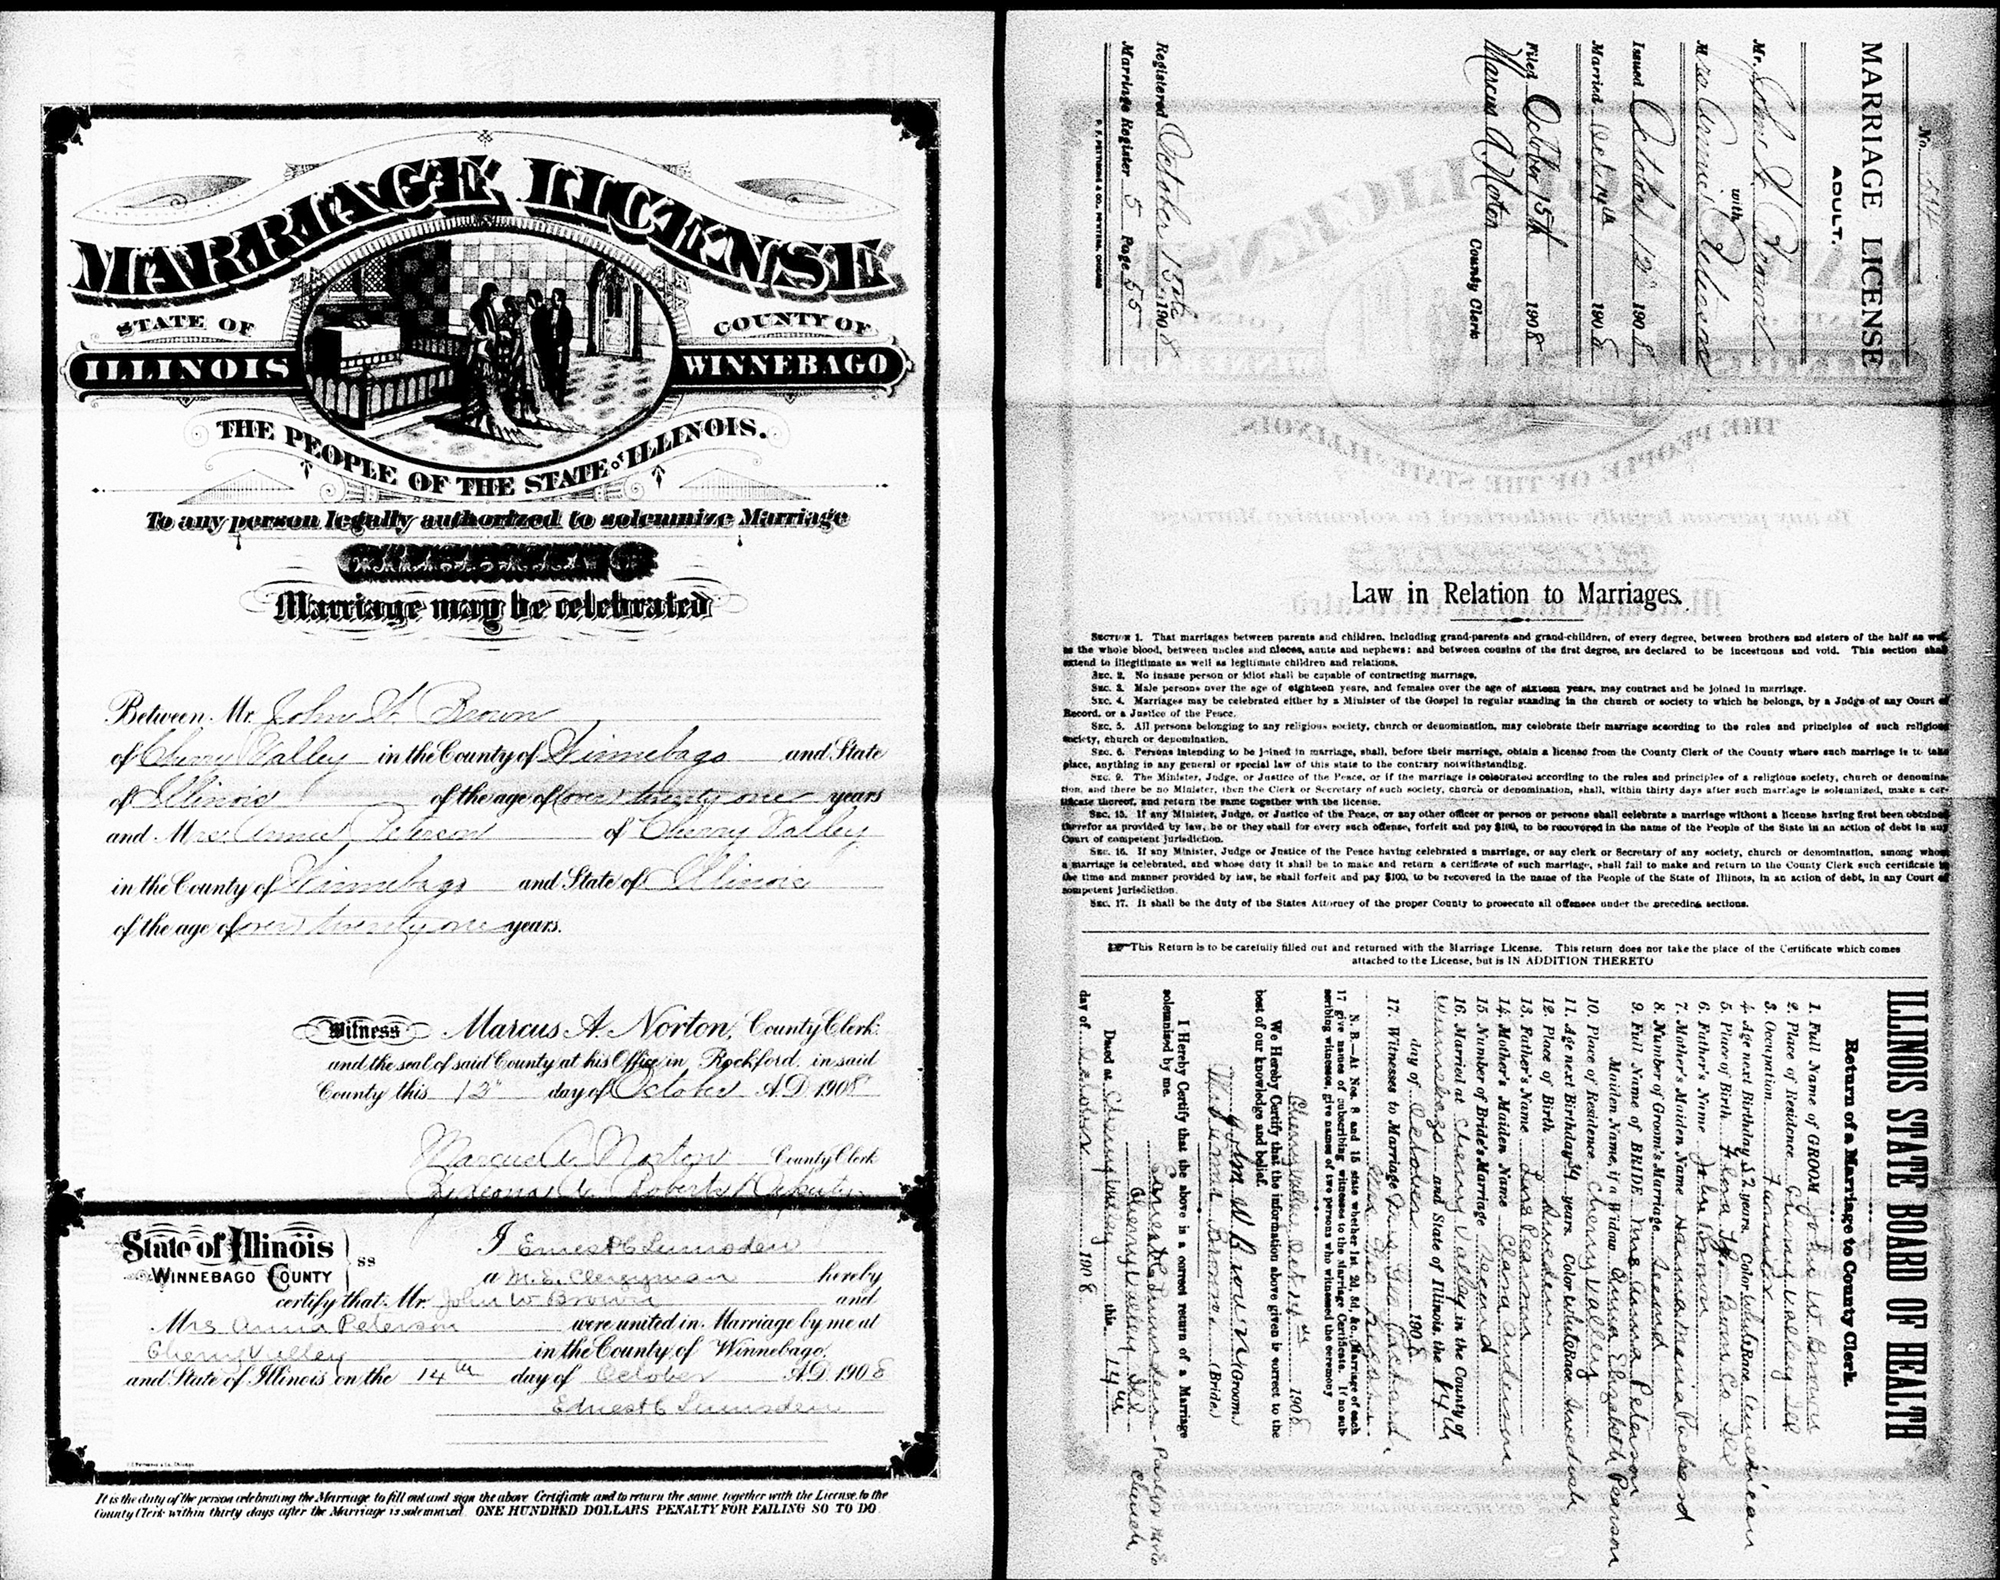 MARRIAGE LICENSE
STATE OF
COUNTY OF
ILLINOIS
WINNEBAGO
THE PEOPLE OF THE STATE OF ILLINOIS.
To any person legally authorized to solemnize Marriage
Marriage may be celebrated
Between Mr. John W. Brown
of Cherry Valley in the County of Winnebago and State
of Illinois of the age of (over) twenty one years
and Mrs. Annie Peterson of Cherry Valley
in the County of Winnebago and State of Illinois
of the age of (over) twenty one years.
Witness Marcus A. Norton, County Clerk
and the seal of said County at his Office in Rockford, in said
County this 13" day of October A.D. 1908
Marcus A. Norton County Clerk
A. Roberts Deputy
State of Illinois
WINNEBAGO COUNTY
ss
I Ernest C Lumsden
a M.E. Clergyman hereby
certify that Mr. John W Brown and
Mrs Anna Peterson were united in Marriage by me at
Cherry Valley in the County of Winnebago,
and State of Illinois on the 14th day of October A.D. 1908
Ernest C Lumsden
It is the duty of the person celebrating the Marriage to fill out and sign the above Certificate and to return the same, together with the License, to the
County Clerk within thirty days after the Marriage is solemnized. ONE HUNDRED DOLLARS PENALTY FOR FAILING SO TO DO
No.
MARRIAGE LICENSE
ADULT.
Mr. John W. Brown
with
Mrs Annie Peterson
Issued October 13" 1908
Married October 14th 1908
Filed October 15th 1908
Marcus A Norton County Clerk
Registered October 15th 1908
Marriage Register 5 Page 55
P. F. PETTIBONE & CO., PRINTERS, CHICAGO
Law in Relation to Marriages.
SECTION 1. That marriages between parents and children, including grand-parents and grand-children, of every degree, between brothers and sisters of the half as well
as the whole blood, between uncles and nieces, aunts and nephews: and between cousins of the first degree, are declared to be incestuous and void. This section shall
extend to illegitimate as well as legitimate children and relations.
SEC. 2. No insane person or idiot shall be capable of contracting marriage.
SEC. 3. Male persons over the age of eighteen years, and females over the age of sixteen years, may contract and be joined in marriage.
SEC. 4. Marriages may be celebrated either by a Minister of the Gospel in regular standing in the church or society to which he belongs, by a Judge of any Court of
Record, or a Justice of the Peace.
SEC. 5. All persons belonging to any religious society, church or denomination, may celebrate their marriage according to the rules and principles of such religious
society, church or denomination.
SEC. 6. Persons intending to be joined in marriage, shall, before their marriage, obtain a license from the County Clerk of the County where such marriage is to take
place, anything in any general or special law of this state to the contrary notwithstanding.
SEC. 9. The Minister, Judge, or Justice of the Peace, or if the marriage is celebrated according to the rules and principles of a religious society, church or denomina-
tion, and there be no Minister, then the Clerk or Secretary of such society, church or denomination, shall, within thirty days after such marriage is solemnized, make a cer-
tificate thereof, and return the same together with the license.
SEC. 15. If any Minister, Judge, or Justice of the Peace, or any other officer or person or persons shall celebrate a marriage without a license having first been obtained
therefor as provided by law, he or they shall for every such offense, forfeit and pay $100, to be recovered in the name of the People of the State in an action of debt in any
Court of competent jurisdiction.
SEC. 16. If any Minister, Judge or Justice of the Peace having celebrated a marriage, or any clerk or Secretary of any society, church or denomination, among whom
a marriage is celebrated, and whose duty it shall be to make and return a certificate of such marriage, shall fail to make and return to the County Clerk such certificate in
the time and manner provided by law, he shall forfeit and pay $100, to be recovered in the name of the People of the State of Illinois, in an action of debt, in any Court of
competent jurisdiction.
SEC. 17. It shall be the duty of the States Attorney of the proper County to prosecute all offenses under the preceding sections.
This Return is to be carefully filled out and returned with the Marriage License. This return does not take the place of the Certificate which comes
attached to the License, but is IN ADDITION THERETO
ILLINOIS STATE BOARD OF HEALTH
Return of a Marriage to County Clerk.
1. Full Name of GROOM John W. Brown
2. Place of Residence Cherry Valley Ill
3. Occupation
4. Age next Birthday 52 years. Color White Race American
5. Place of Birth Co Ill
6. Father's Name John Brown
7. Mother's Maiden Name Hanna
8. Number of Groom's Marriage Second
9. Full Name of BRIDE Mrs Anna Peterson
Maiden Name, if a Widow Anna Elizabeth Pearson
10. Place of Residence Cherry Valley
11. Age next Birthday 34 years. Color White Race Swedish
12. Place of Birth Sweden
13. Father's Name Lars Pearson
14. Mother's Maiden Name Clara Anderson
15. Number of Bride's Marriage Second
16. Married at Cherry Valley in the County of
Winnebago and State of Illinois, the 14th
day of October 1908
17. Witnesses to Marriage
N. B.—At Nos. 8 and 15 state whether 1st, 2d, 3d, &c., Marriage of each
17 give names of subscribing witnesses to the Marriage Certificate. If no sub
scribing witnesses, give names of two persons who witnessed the ceremony
Cherry Valley Oct 14th 1908
We Hereby Certify that the information above given is correct to the
best of our knowledge and belief.
John W Brown (Groom)
Brown (Bride)
I Hereby Certify that the above is a correct return of a Marriage
solemnized by me.
Ernest C Lumsden - Pastor M.E.
Cherry Valley Ill Church
Dated at Cherry Valley this 14th
day of October 1908